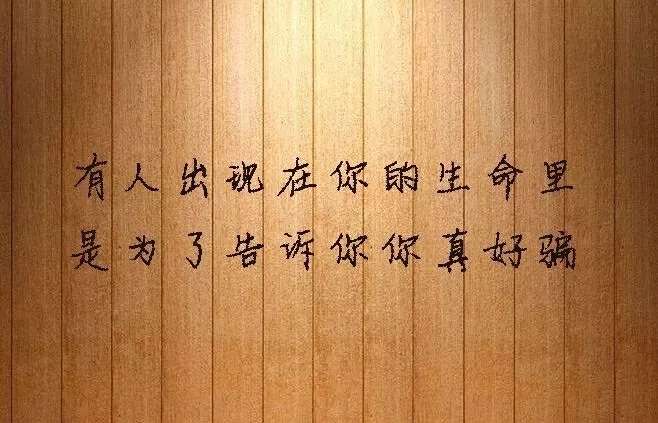 有人出现在你的生命里
是为了告诉你你真好骗